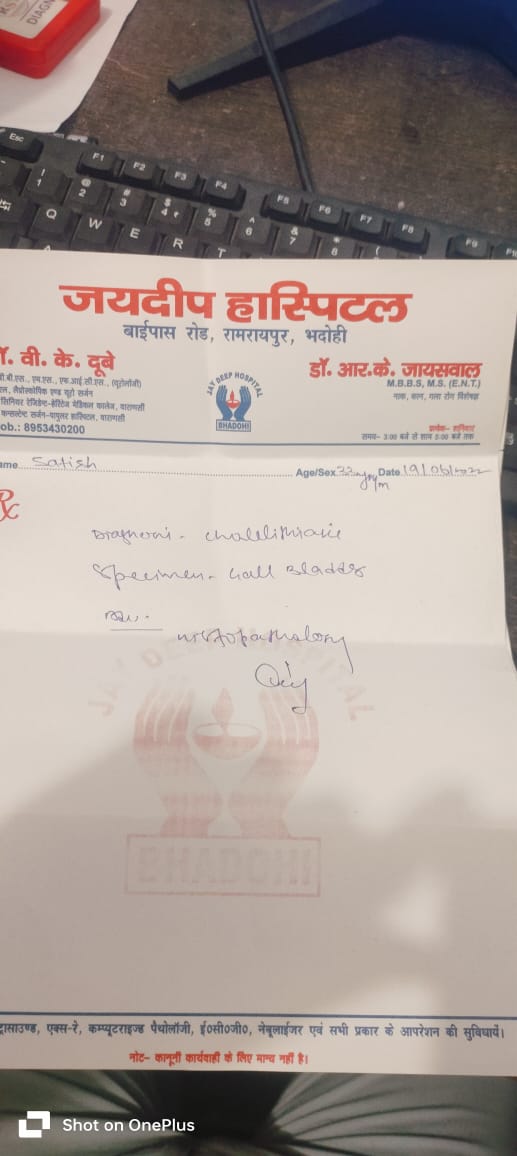 DIAGN
Esc F1 F2 F3 F4 F5 F6 F7 F8 F9
! 1 @ 2 # 3 $ 4 % 5 ^ 6 & 7 * 8
Q W E R T
जयदीप हास्पिटल
बाईपास रोड, रामरायपुर, भदोही
वी. के. दूबे
डॉ. आर.के. जायसवाल
M.B.B.S, M.S. (E.N.T.)
नाक, कान, गला रोग विशेषज्ञ
एम.एस., एफ.आई.सी.एस., (यूरोलॉजी)
लैप्रोस्कोपिक एण्ड यूरो सर्जन
सिनियर रेजिडेन्ट-हेरिटेज मेडिकल कालेज, वाराणसी
कन्सल्टेन्ट सर्जन-पापुलर हास्पिटल, वाराणसी
ob.: 8953430200
JAY DEEP HOSPITAL
BHADOHI
प्रत्येक- शनिवार
समय- 3:00 बजे से शाम 5:00 बजे तक
ame Satish Age/Sex Date
Rx
Specimen - Gall Bladder
Histopathology
JAY DEEP HOSPITAL
BHADOHI
ट्रासाउण्ड, एक्स-रे, कम्प्यूटराइज्ड पैथोलॉजी, ई०सी०जी०, नेबूलाईजर एवं सभी प्रकार के आपरेशन की सुविधायें।
नोट- कानूनी कार्यवाही के लिए मान्य नहीं है।
Shot on OnePlus